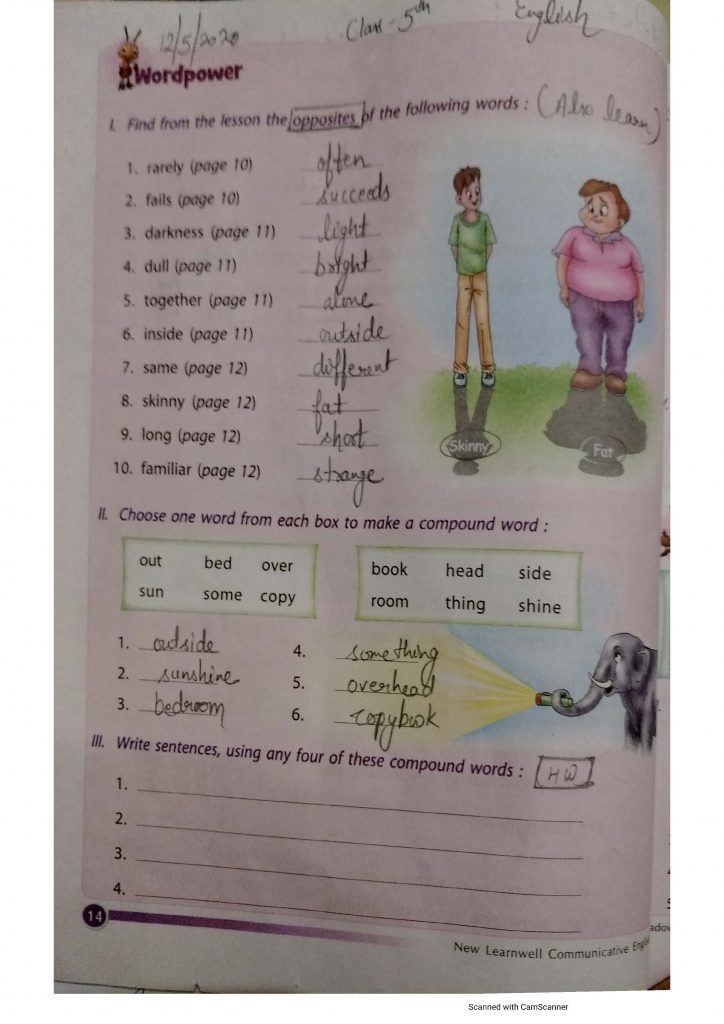 12/5/2020 Class - 5th English
Wordpower
I. Find from the lesson the opposites of the following words : (Also learn)
1. rarely (page 10) often
2. fails (page 10) succeeds
3. darkness (page 11) light
4. dull (page 11) bright
5. together (page 11) alone
6. inside (page 11) outside
7. same (page 12) different
8. skinny (page 12) fat
9. long (page 12) short
10. familiar (page 12) strange
Skinny Fat
II. Choose one word from each box to make a compound word :
out bed over
sun some copy
book head side
room thing shine
1. outside
2. sunshine
3. bedroom
4. something
5. overhead
6. copybook
III. Write sentences, using any four of these compound words : HW
1.
2.
3.
4.
14
New Learnwell Communicative
Scanned with CamScanner